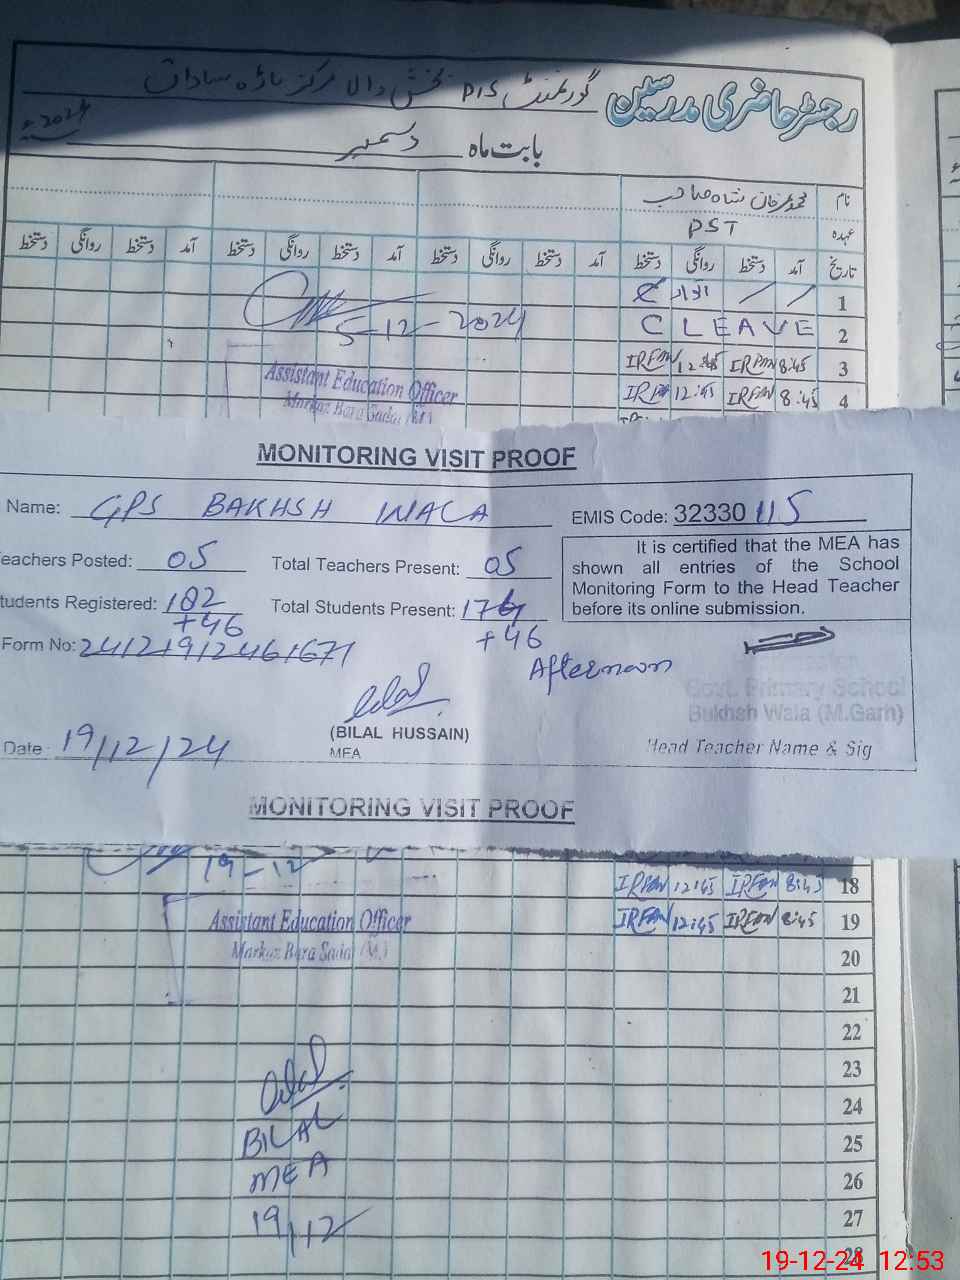 رجسٹر حاضری مدرسین گورنمنٹ P/S بخش والا مرکز باڑہ سادات
بابت ماہ دسمبر 2024ء
نام محمد عرفان شاہ صاحب
عہدہ PST
تاریخ آمد دستخط روانگی دستخط آمد دستخط روانگی دستخط آمد دستخط روانگی دستخط
1 اتوار
2 C LEAVE
3 8:45 IRFAN 12:45 IRFAN
4 8:45 IRFAN 12:45 IRFAN
5-12-2024
Assistant Education Officer
Markaz Bara Sadat (M)
MONITORING VISIT PROOF
Name: GPS BAKHSH WALA
EMIS Code: 32330115
eachers Posted: 05
Total Teachers Present: 05
It is certified that the MEA has shown all entries of the School Monitoring Form to the Head Teacher before its online submission.
tudents Registered: 182 +46
Total Students Present: 174 +46
Afternoon
Form No: 24121912461671
Govt. Primary School
Bukhsh Wala (M.Garh)
(BILAL HUSSAIN)
MEA
Head Teacher Name & Sig
Date 19/12/24
MONITORING VISIT PROOF
19-12
18 8:45 IRFAN 12:45 IRFAN
19 8:45 IRFAN 12:45 IRFAN
Assistant Education Officer
Markaz Bara Sadat (M)
20
21
22
23
24
25
26
27
28
BILAL
MEA
19/12
19-12-24 12:53